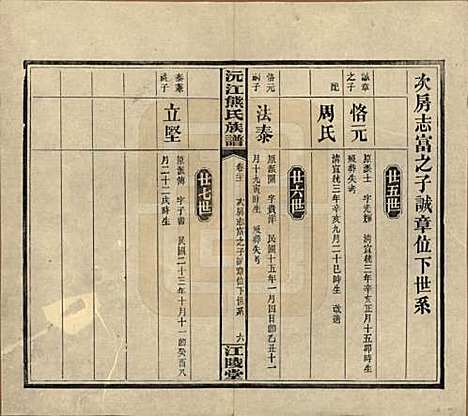 次房志富之子誠章位下世系
廿五世
誠章之子
恪元
原派士 字光輝 清宣統三年辛亥正月十五卯時生
殁葬失考
周氏
清宣統三年辛亥九月二十巳時生 改適
廿六世
恪元嗣子
法泰
原派開 字貴洋 民國十五年一月四日卽乙丑十一
月十九寅時生 殁葬失考
沅江熊氏族譜
卷廿
次房志富之子誠章位下世系
六
江陵堂
廿七世
泰兼祧子
立堅
原派傳 字子書 民國二十三年十月十一卽癸酉八
月二十二戌時生